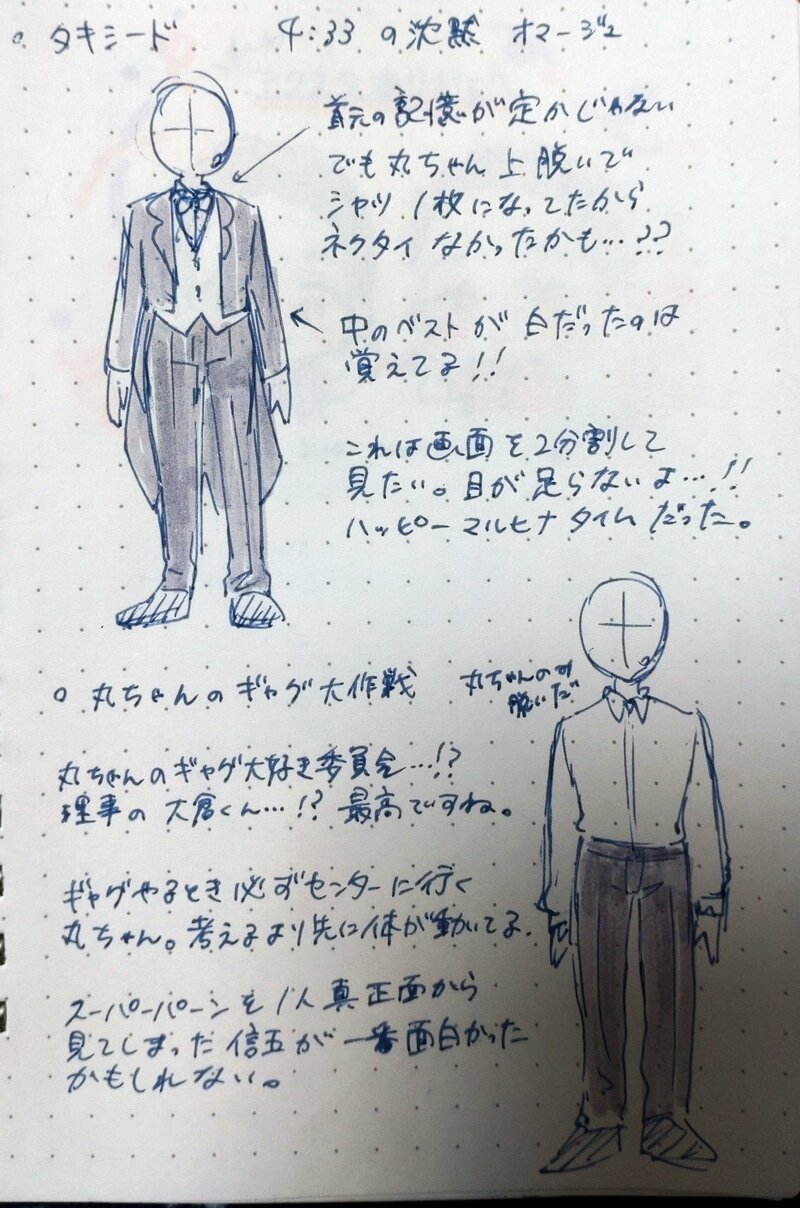 ○ タキシード 4:33 の沈黙 オマージュ
首元の記憶が定かじゃない
でも丸ちゃん上脱いで
シャツ1枚になってたから
ネクタイなかったかも…??
中のベストが白だったのは
覚えてる!!
これは画面を2分割して
見たい。目が足らないよ…!!
ハッピーマルヒナタイムだった。
○ 丸ちゃんのギャグ大作戦
丸ちゃんのみ
脱いだ
丸ちゃんのギャグ大好き委員会…!?
理事の大倉くん…!? 最高ですね。
ギャグやるとき必ずセンターに行く
丸ちゃん。考えるより先に体が動いてる.
スーパーパーンを1人真正面から
見てしまった信五が一番面白かった
かもしれない。